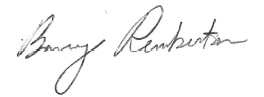 Barry Pemberton